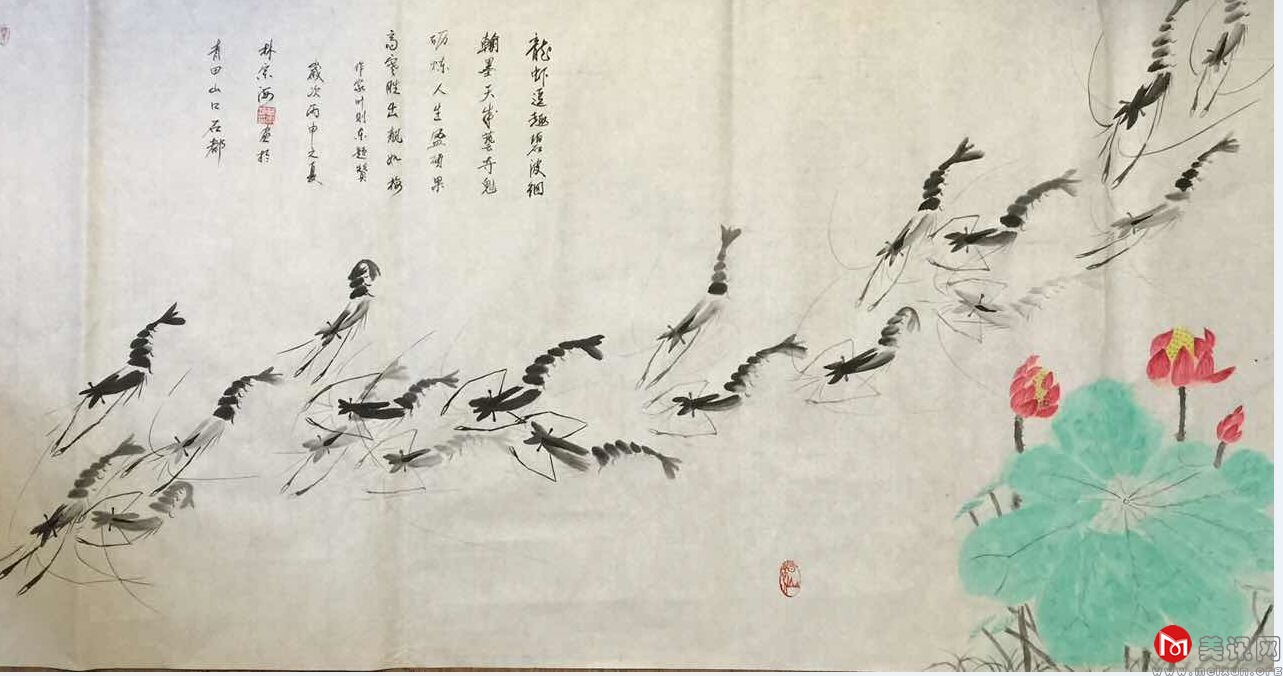 龍虾逗趣碧波徊
翰墨天成艺奇鬼
砺炼人生盈硕果
高寒胜出靓如梅
作家叶则东题赞
歲次丙申之夏
林宗海 画於
青田山口石都
美讯网
www.meixun.org